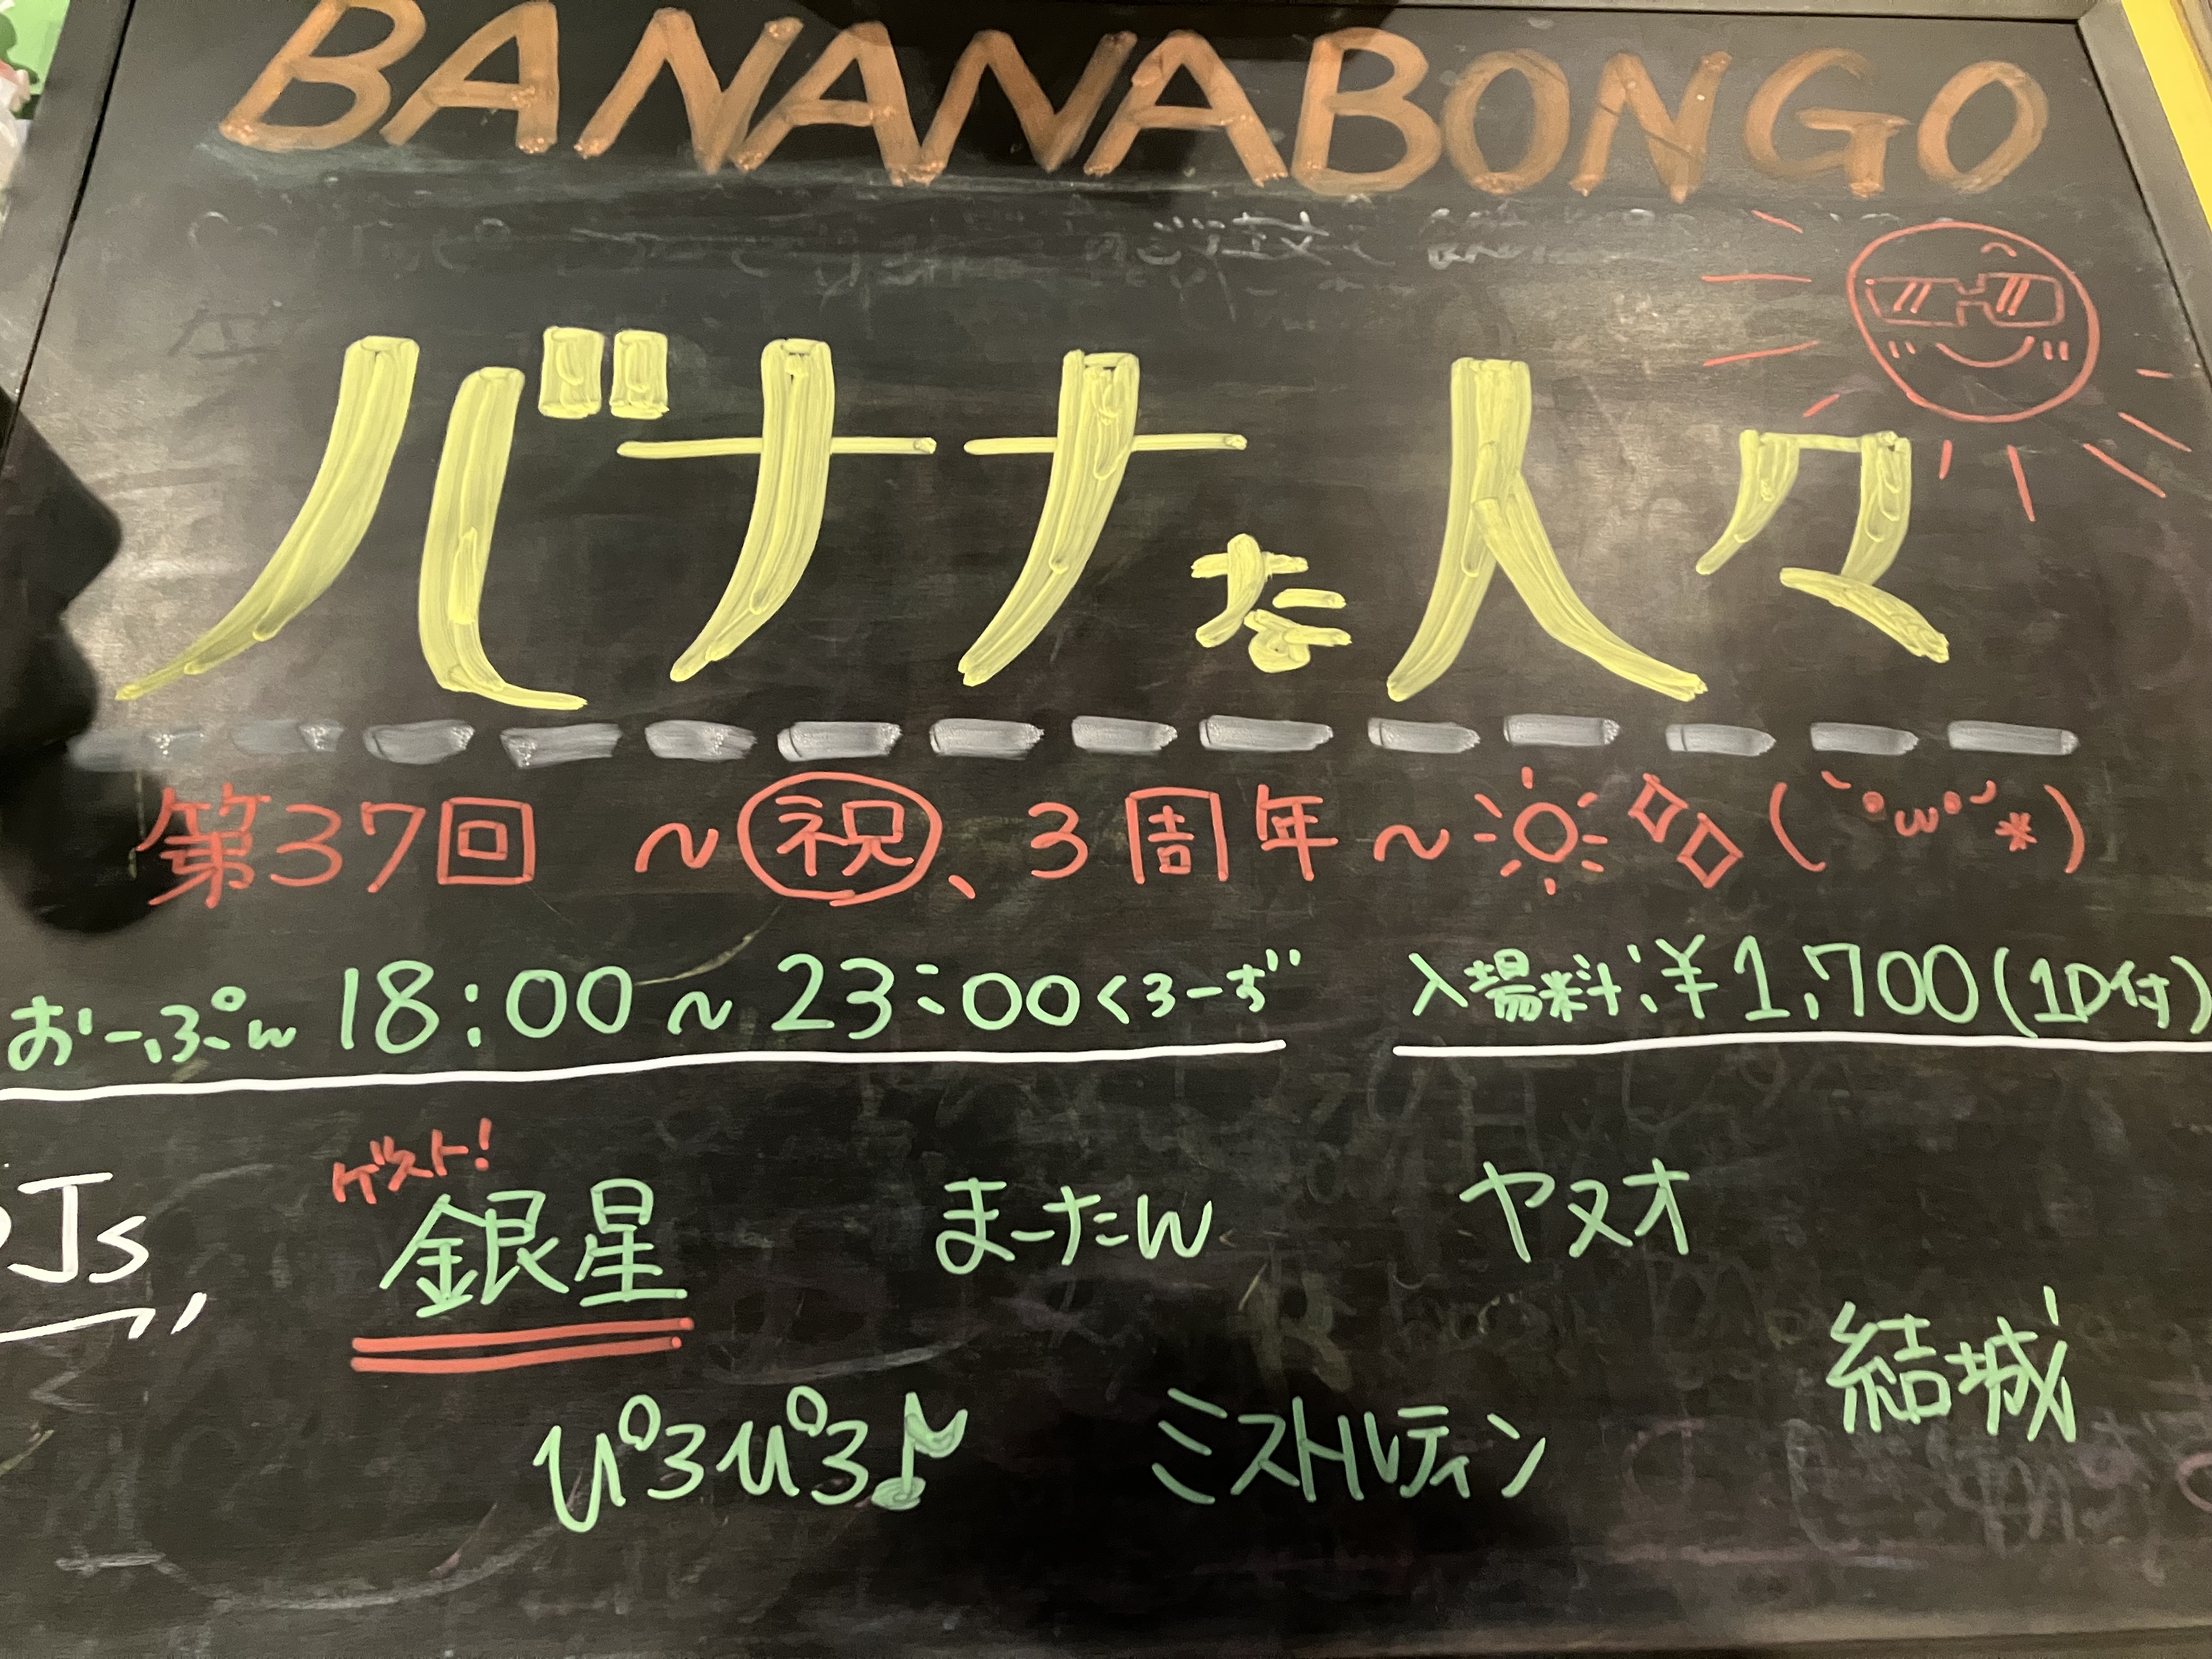 BANANABONGO
バナナな人々
第37回 ～㊗、3周年～ (｀°ω°´*)
おーぷん 18:00～23:00くろーず 入場料:¥1,700(1D付)
ゲスト!
DJs 銀星 まーたん ヤヌオ
結城
ぴろぴろ♪ ミストルティン